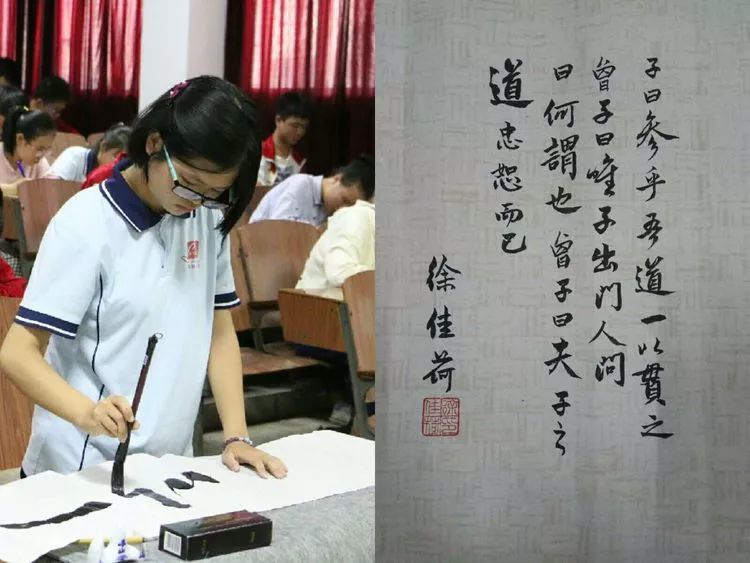 子曰參乎吾道一以貫之
曾子曰唯子出門人問
曰何謂也曾子曰夫子之
道忠恕而已
徐佳荷